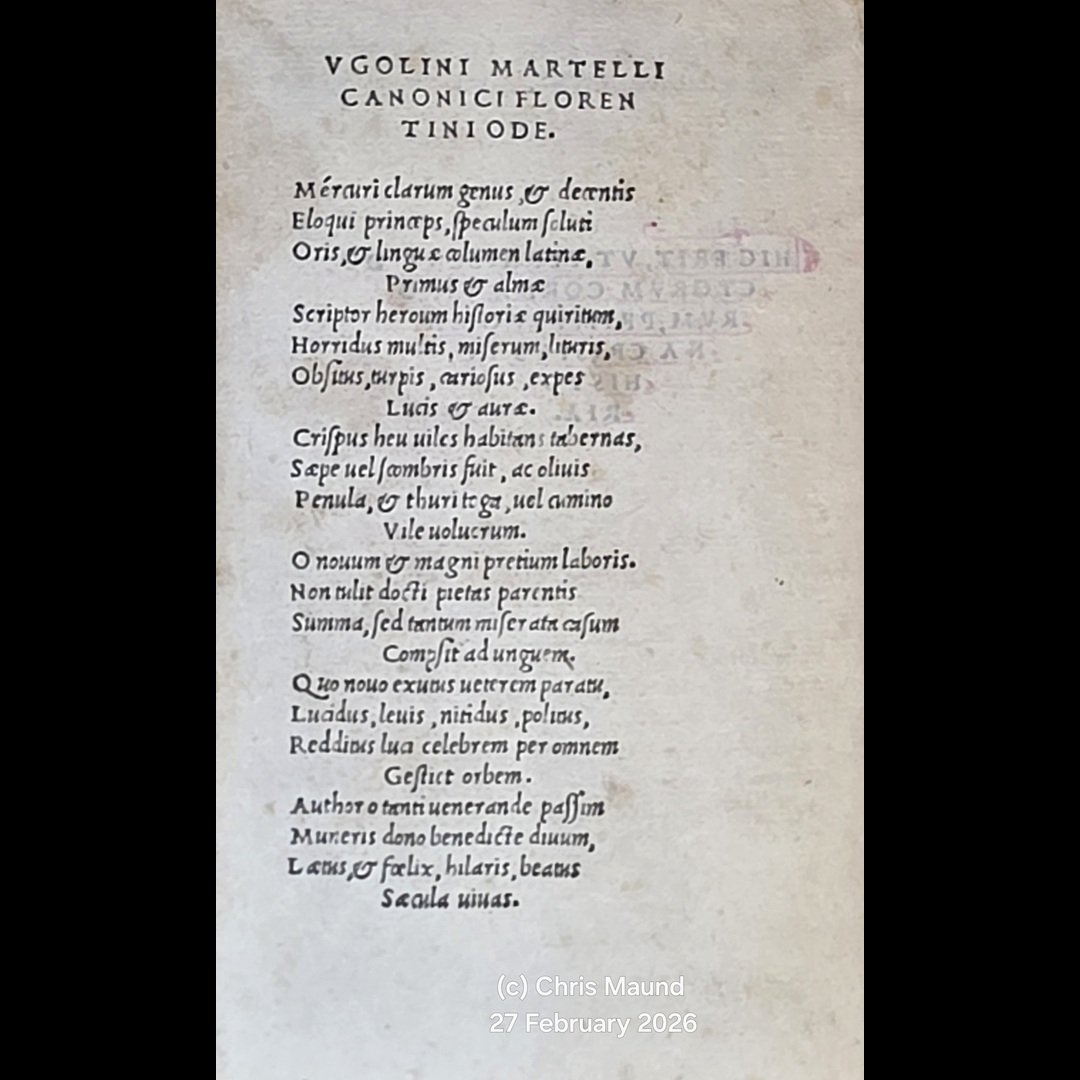 VGOLINI MARTELLI
CANONICI FLOREN
TINI ODE.
Mércuri clarum genus, & decentis
Eloqui princeps, ſpeculum ſoluti
Oris, & linguæ columen latinæ,
Primus & almæ
Scriptor heroum hiſtoriæ quiritum,
Horridus multis, miſerum, lituris,
Obſitus, turpis, carioſus, expes
Lucis & auræ.
Criſpus heu uiles habitans tabernas,
Sæpe uel ſcombris fuit, ac oliuis
Penula, & thuri toga, uel cumino
Vile uolucrum.
O nouum & magni pretium laboris.
Non tulit docti pietas parentis
Summa, ſed tantum miſerata caſum
Compſit ad unguem.
Quo nouo exutus ueterem paratu,
Lucidus, leuis, nitidus, politus,
Redditus luci celebrem per omnem
Geſtiet orbem.
Author o tanti uenerande paſſim
Muneris dono benedicte diuum,
Lætus, & fœlix, hilaris, beatus
Sæcula uiuas.
(c) Chris Maund
27 February 2026